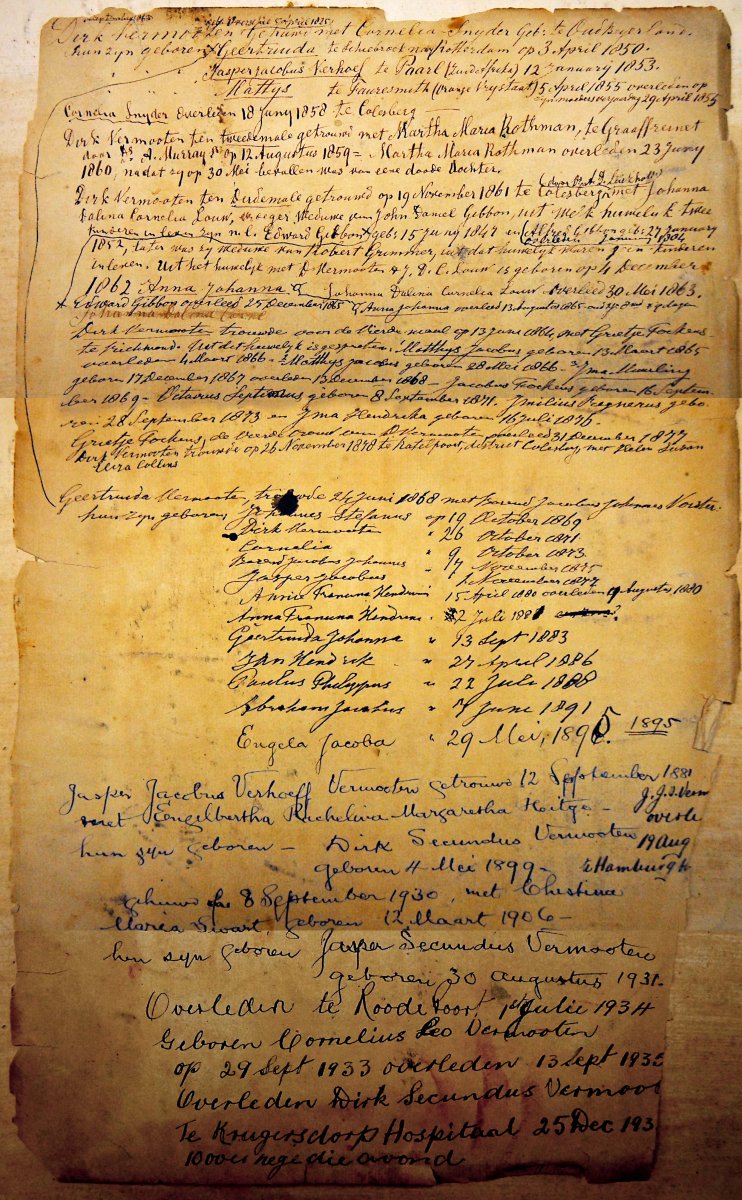 Dirk Vermooten Getrouwd met Cornelia Snyder Geb: te Oud Beyerland.
hun zyn geboren Geertruida te Schiebroek nar Rotterdam op 3 April 1850.
Jasper Jacobus Verhoef te Paarl (Zuid Afrika) 12 January 1853.
Mattys te Fauresmith (Oranje Vrystaat) 5 April 1855 overleden op
29 April 1855
Cornelia Snyder Overleden 18 Juny 1858 te Colesberg
Dirk Vermooten ten tweedemale getrouwd met Martha Maria Rothman, te Graaffreinet
door Ds A. Murray Sr op 12 Augustus 1859 = Martha Maria Rothman overleden 23 Juny
1860, nadat zy op 30 Mei bevallen was van eene doode dochter.
Dirk Vermooten ten Derdemale getrouwd op 19 November 1861 te Colesberg met Johanna
Dalina Cornelia Louw, vroeger Weduwe van John Daniel Gibbon, uit welk huwelyk twee
kinderen in leven zyn n.l. Edward Gibbon geb: 15 Juny 1847 en Alfred Gibbon geb: 27 January
1852, later was zy weduwe van Robert Grimmer, uit dat huwelyk waren geen kinderen
in leven. Uit het huwelyk met D. Vermooten & J. D. C. Louw is geboren op 4 December
1862 : Anna Johanna Johanna Dalina Cornelia Louw Overleed 30 Mei 1863.
Edward Gibbon overleed 25 December 1865 & Anna Johanna overleed 13 Augustus 1865
Johanna Dalina
Dirk Vermooten trouwde voor de Vierde maal op 13 Juni 1864, met Grietje Fockens
te Richmond. Uit dit huwelyk is gesproten: Matthys Jacobus geboren 13 Maart 1865
overleden 4 Maart 1866 - Matthys Jacobus geboren 28 Mei 1866 -
geboren 17 December 1867 overleden 13 December 1868 - Jacobus Fockens geboren 16 Septem-
ber 1869 - Octavus Septimus geboren 8 September 1871. Imilius Regnerus gebo-
ren 28 September 1873 en Yma Hendrika geboren 16 Juli 1876.
Grietje Fockens, de vierde vrouw van D. Vermooten, overleed 31 December 1877
Dirk Vermooten trouwde op 26 November 1878 te Katelpoort, district Colesberg, met Helen Susan
Eliza Collins
Geertruida Vermooten, trouwde 24 Juni 1868 met Barend Jacobus Johannes Vorster.
hun zyn geboren, Johannes Stefanus op 19 October 1869
Dirk Vermooten " 26 October 1871
Cornelia " 9 October 1873
Barend Jacobus Johannes " 17 November 1875
Jasper Jacobus November 1877
Annie Francina Hendrina 15 April 1880 overleden 9 Augustus 1880
Anna Francina Hendrina 2 Juli 1881
Geertruida Johanna " 13 Sept 1883
Jan Hendrik " 27 April 1886
Paulus Philippus " 22 Juli 1888
Abraham Jacobus " 7 Juni 1891
Engela Jacoba " 29 Mei, 1895. 1895
Jasper Jacobus Verhoeff Vermooten getrouwd 12 September 1881
met Engelbertha Rachelina Margaretha Heitge -
hun zyn geboren - Dirk Secundus Vermooten
geboren 4 Mei 1899 -
J. J. V. Verm
overle
19 Aug
te Hamburg
gehuwd 8 September 1930, met Chestina
Maria Swart, geboren 12 Maart 1906 -
hun syn geboren Jasper Secundus Vermooten
geboren 30 augustus 1931.
Overleden te Roodepoort 1st Julie 1934
Geboren Cornelius Leo Vermooten
op 29 Sept 1933 overleden 13 Sept 1935
Overleden Dirk Secundus Vermoot
Te Krugersdorp Hospitaal 25 Dec 193
10 over nege die avond